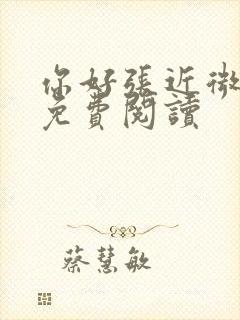 你好張近微
免費閱讀
蔡慧敏